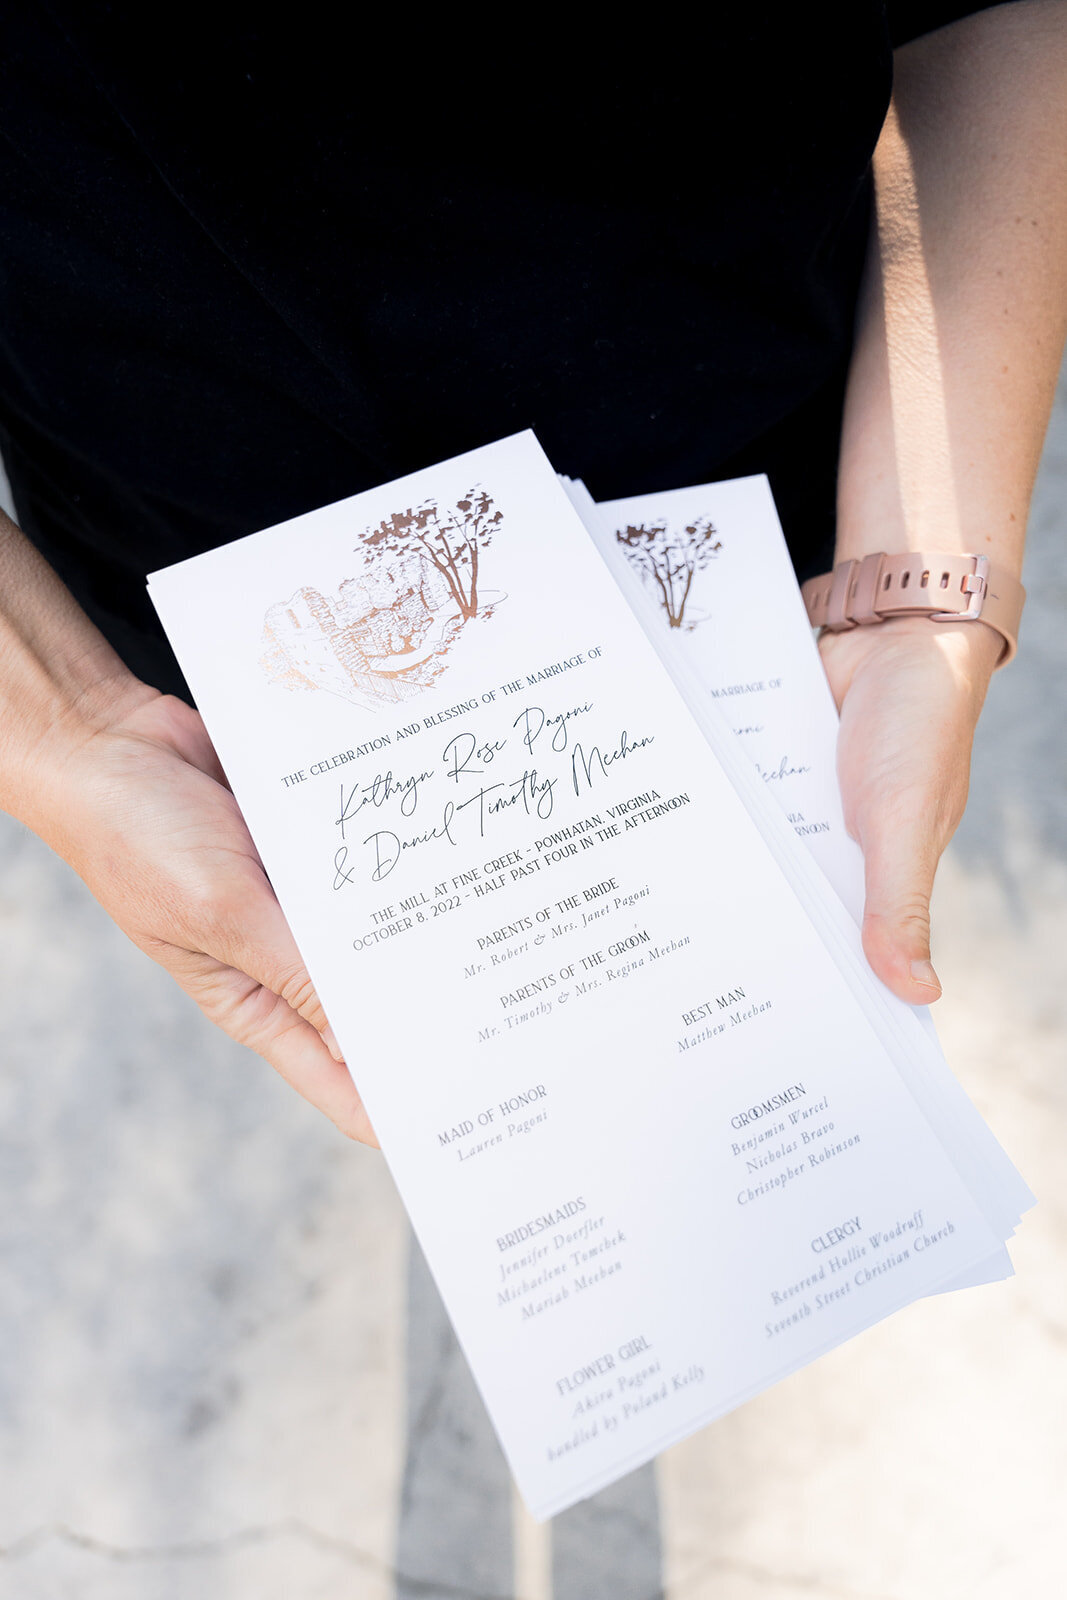 THE CELEBRATION AND BLESSING OF THE MARRIAGE OF
Kathryn Rose Pagoni
& Daniel Timothy Meehan
THE MILL AT FINE CREEK - POWHATAN, VIRGINIA
OCTOBER 8, 2022 - HALF PAST FOUR IN THE AFTERNOON
PARENTS OF THE BRIDE
Mr. Robert & Mrs. Janet Pagoni
PARENTS OF THE GROOM
Mr. Timothy & Mrs. Regina Meehan
BEST MAN
Matthew Meehan
MAID OF HONOR
Lauren Pagoni
GROOMSMEN
Benjamin Wurcel
Nicholas Bravo
Christopher Robinson
BRIDESMAIDS
Jennifer Doerfler
Michaelene Tomchek
Mariah Meehan
CLERGY
Reverend Hollie Woodruff
Seventh Street Christian Church
FLOWER GIRL
Akira Pagoni
handled by Poland Kelly
MARRIAGE OF
Meehan